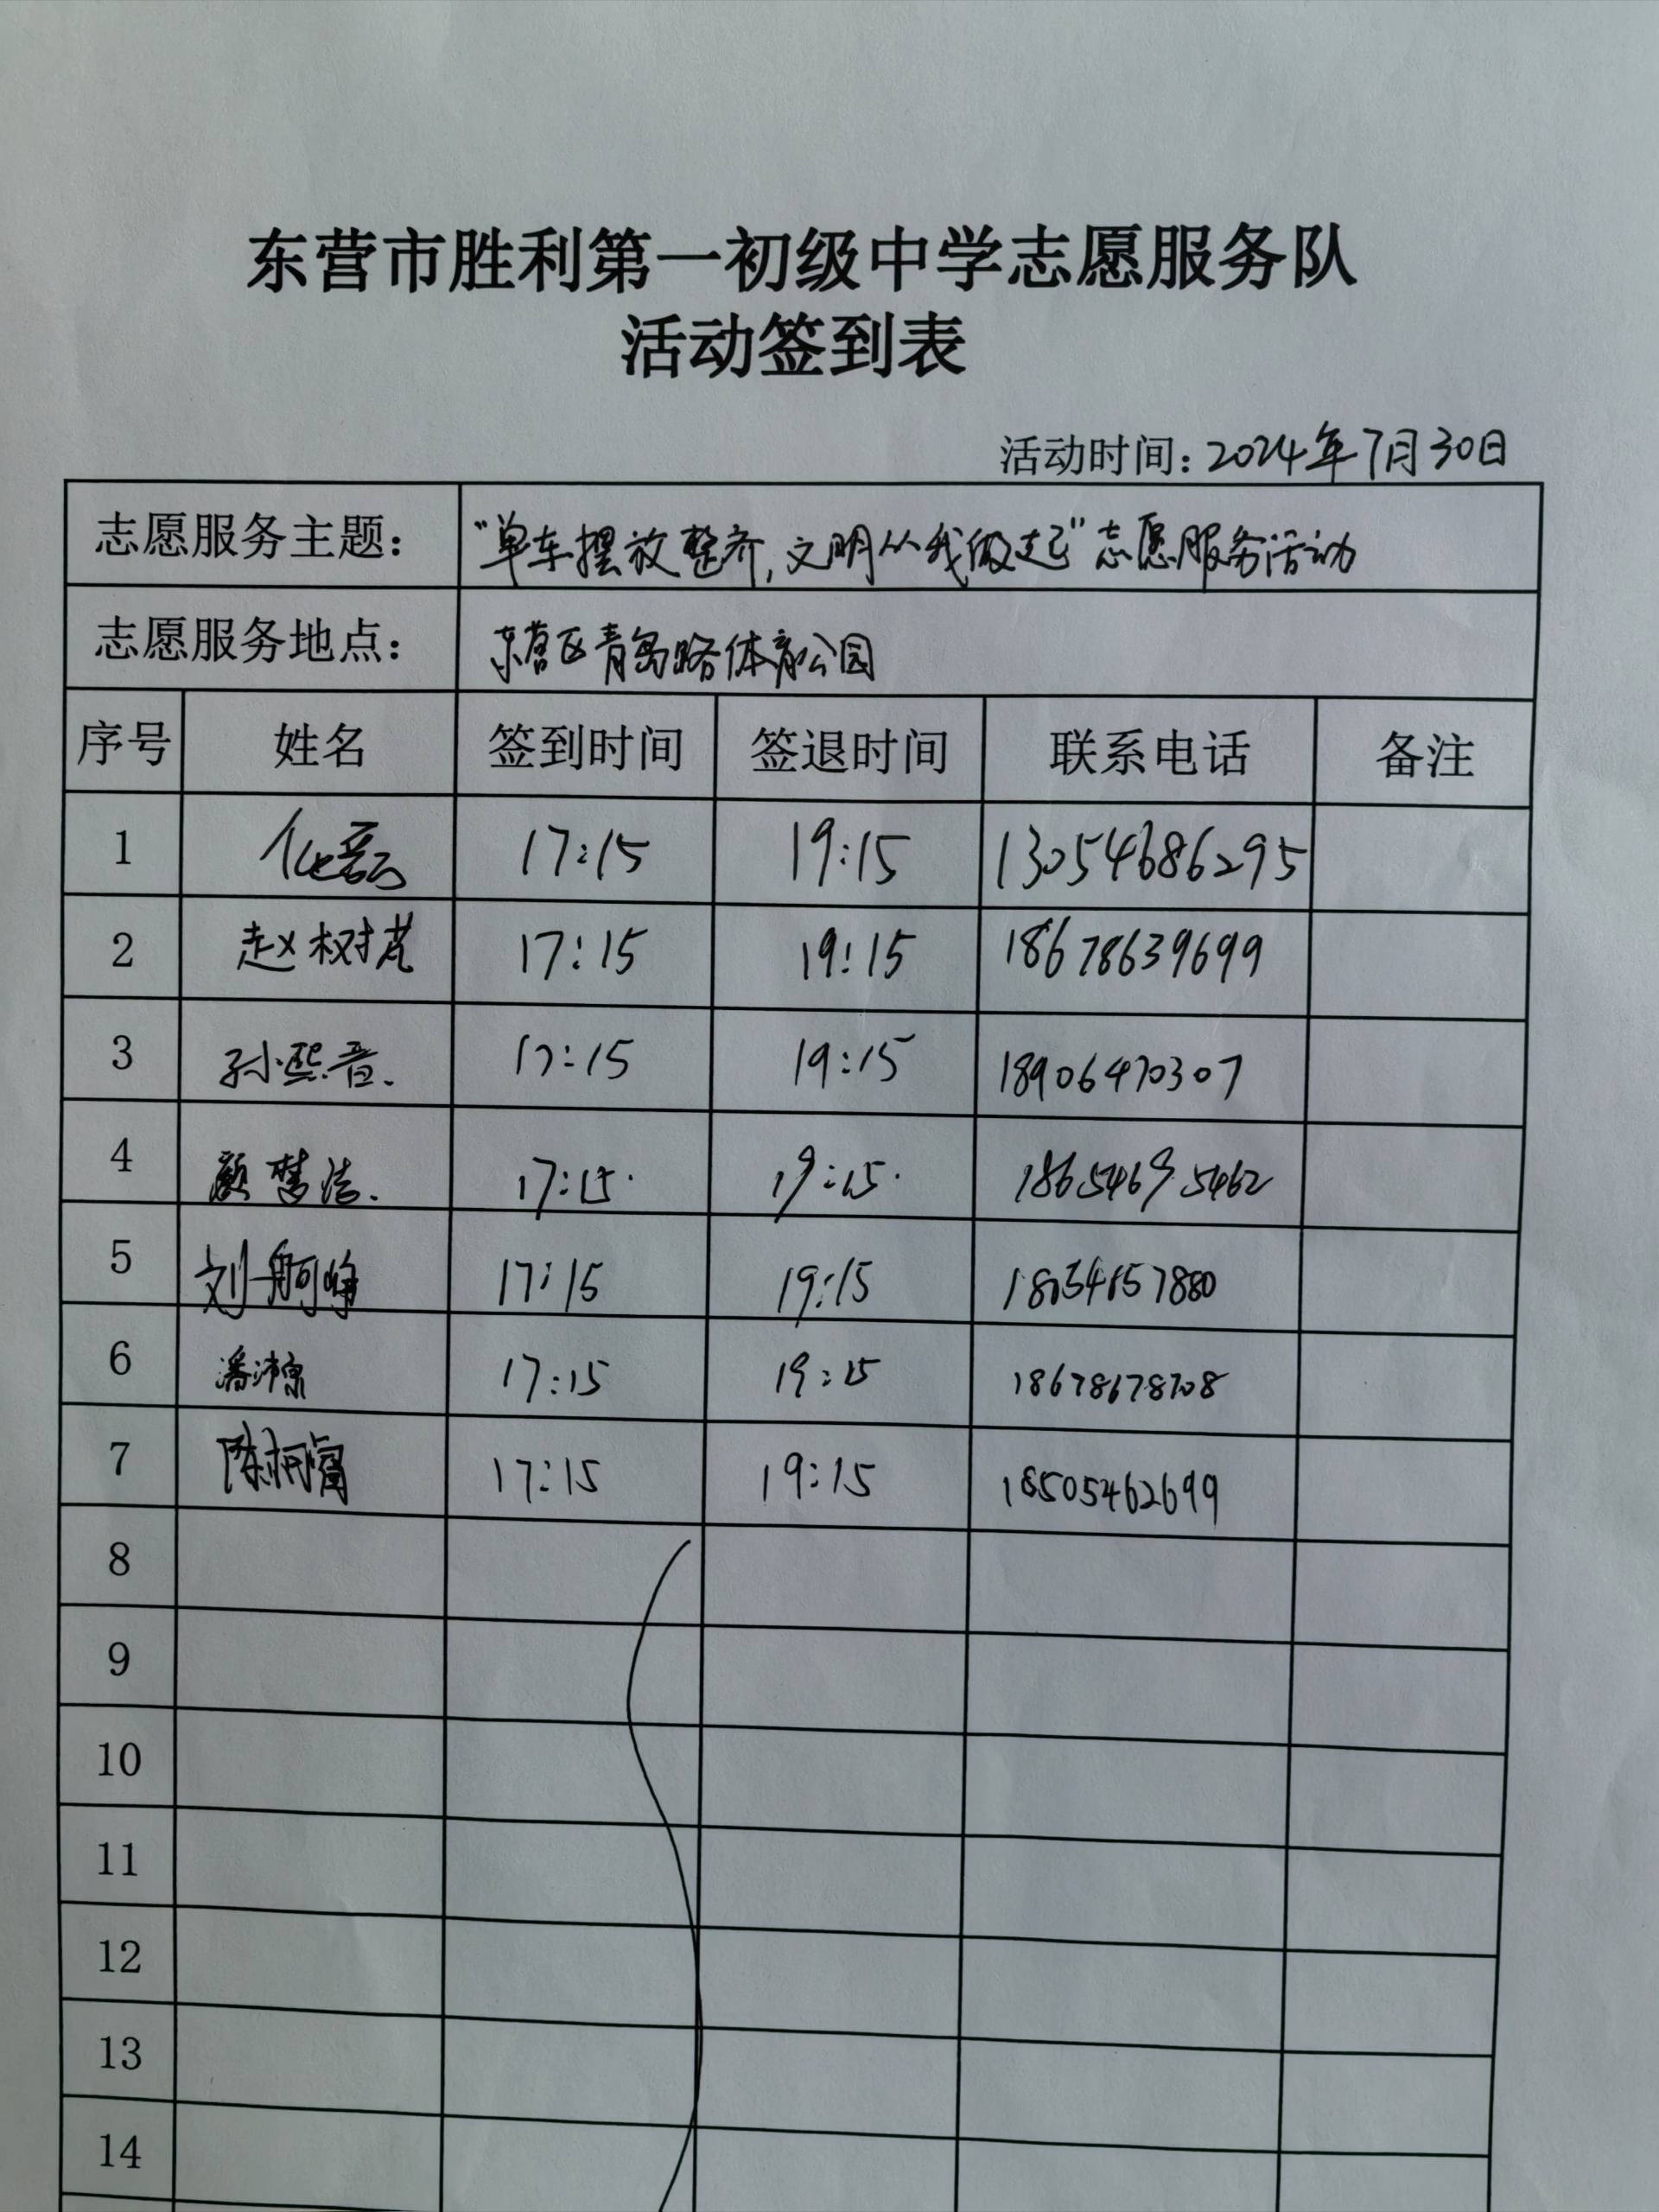 东营市胜利第一初级中学志愿服务队
活动签到表
活动时间：2024年7月30日
志愿服务主题： “单车摆放整齐，文明从我做起”志愿服务活动
志愿服务地点： 东营区青岛路体育公园
序号 姓名 签到时间 签退时间 联系电话 备注
1 17:15 19:15 13054686295
2 赵树芃 17:15 19:15 18678639699
3 孙熙晋. 17:15 19:15 18906470307
4 颜梦洁. 17:15. 19:15. 18654695462
5 17:15 19:15
6 潘沛泉 17:15 19:15 18678678708
7 17:15 19:15 18505462699
8
9
10
11
12
13
14